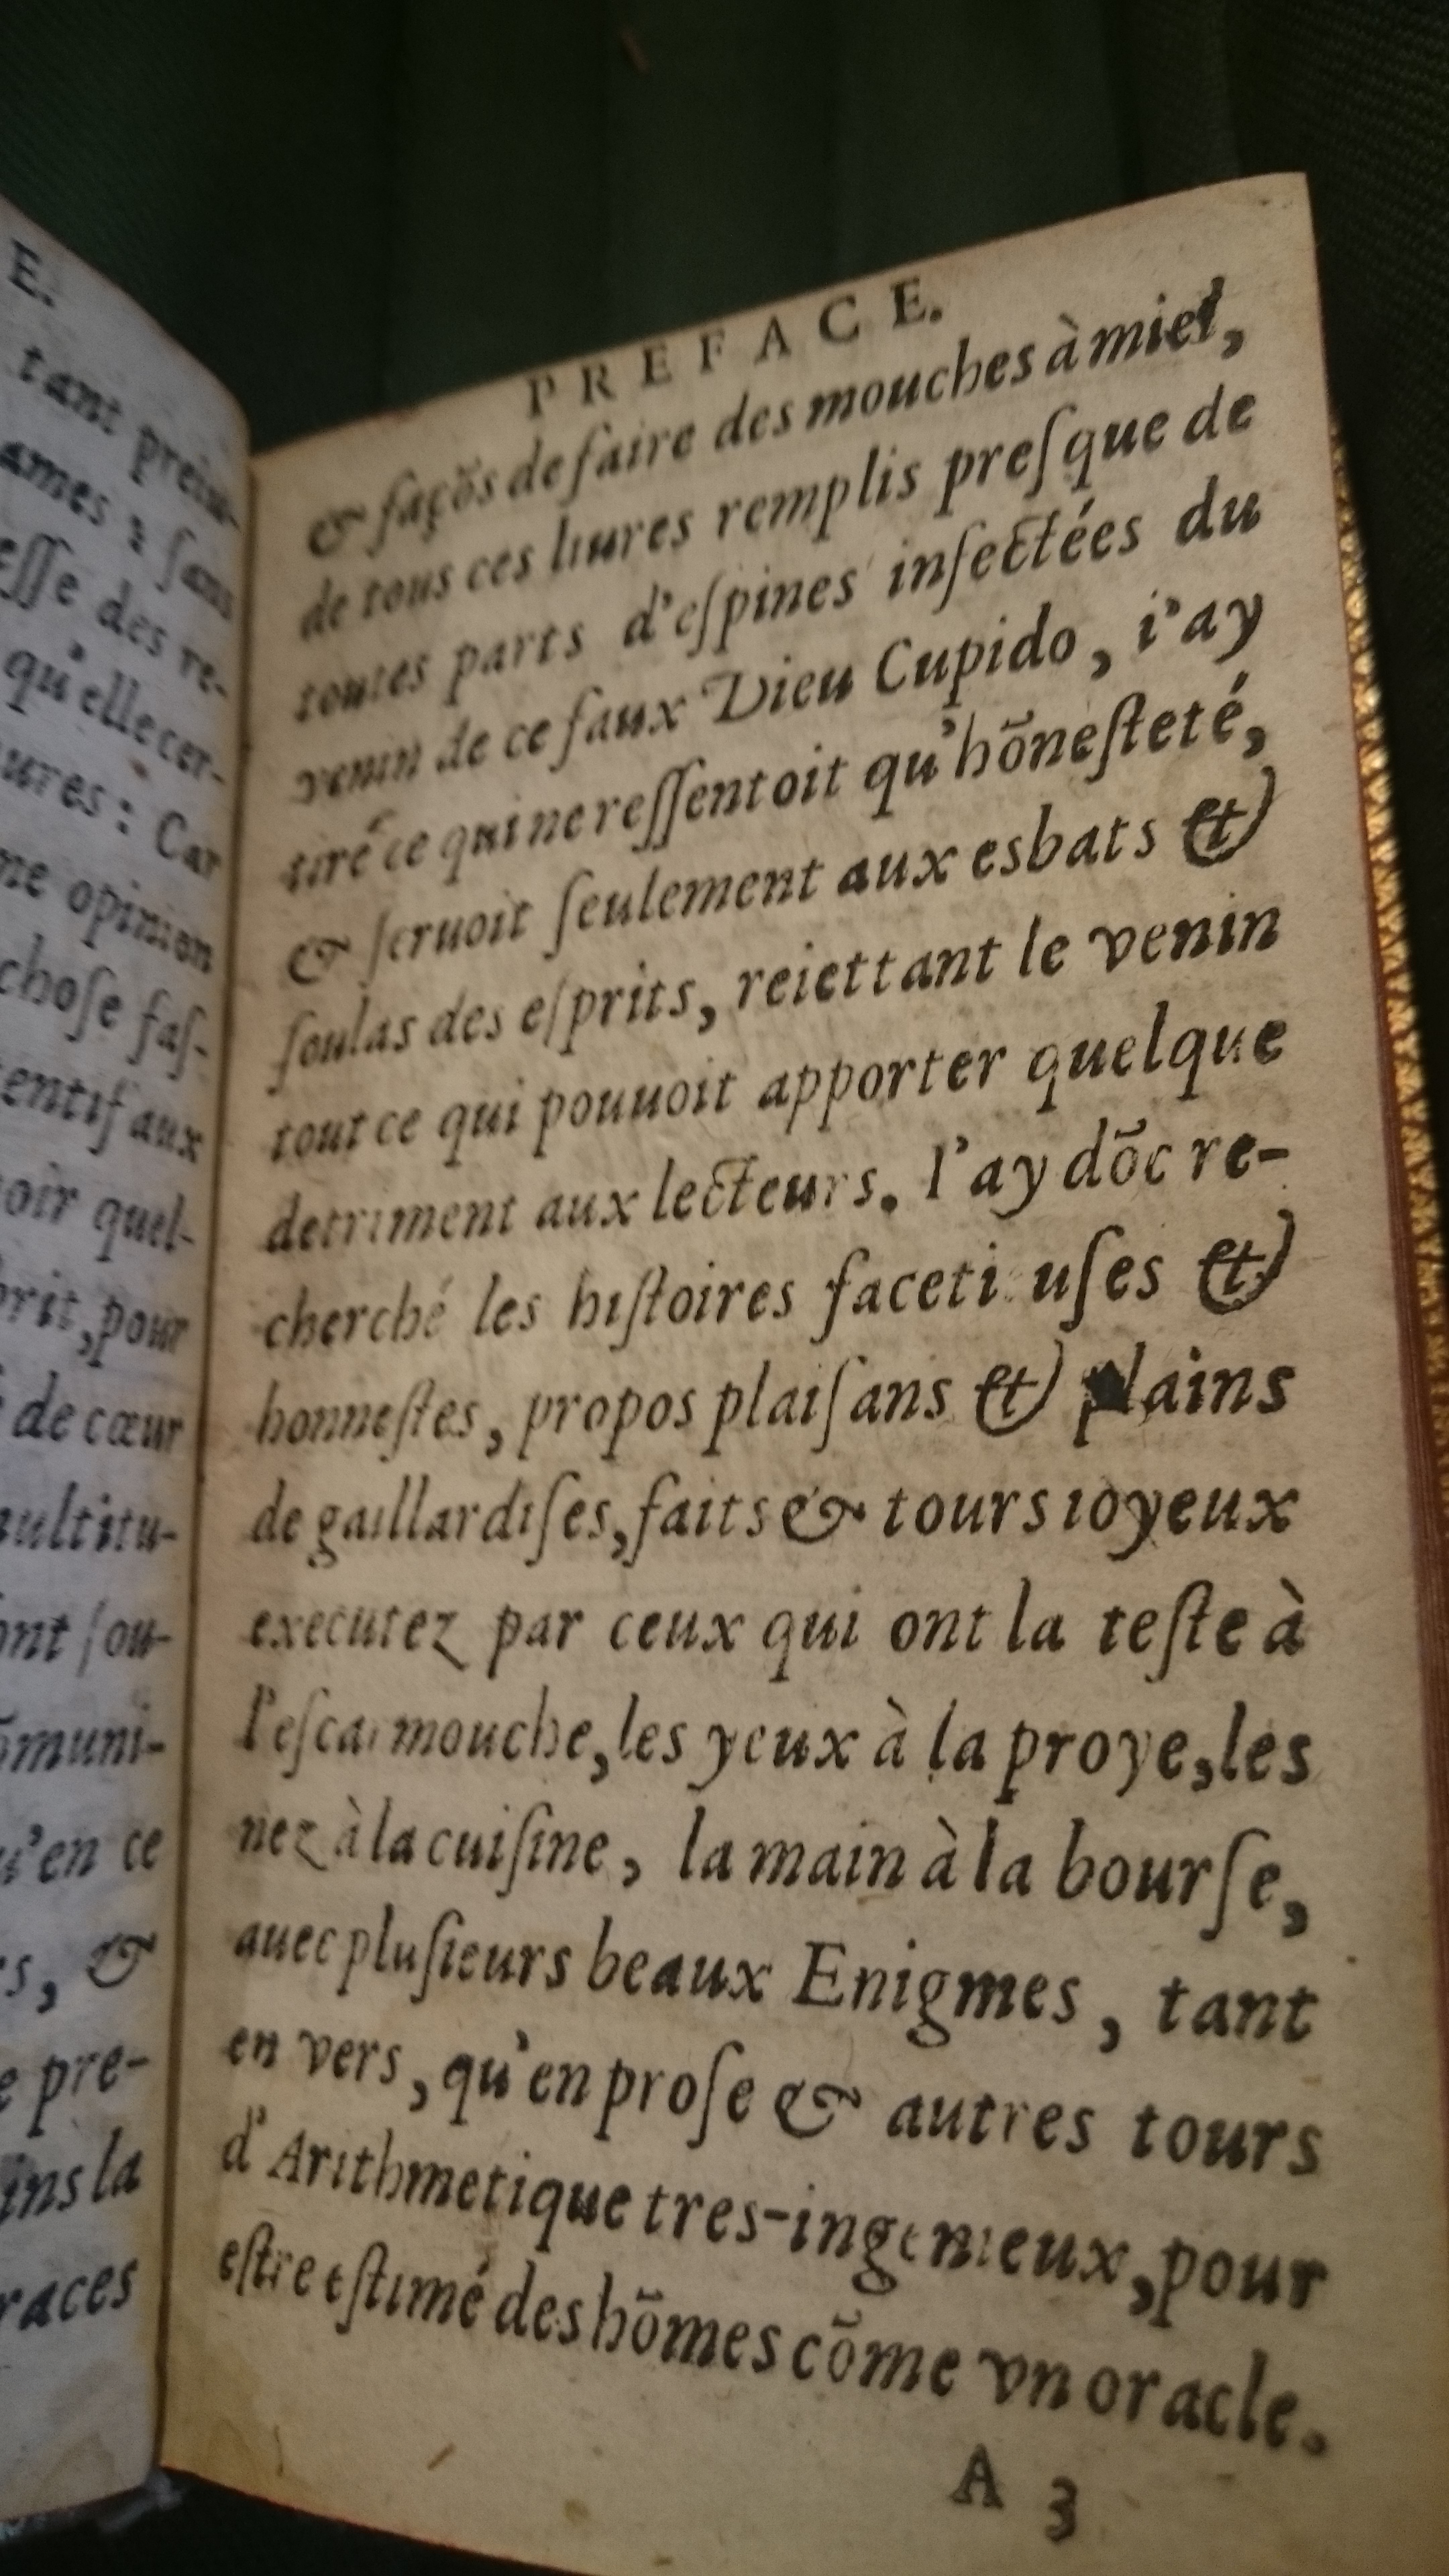 E.
tant
ames : sans
esse des re-
qu'elle cer-
ures : Car
me opinion
chose fas-
entif aux
oir quel-
prit, pour
de cœur
ultitu-
ont sou-
õmuni-
u'en ce
rs, &
e pre-
ins la
races
PREFACE.
& façõs de faire des mouches à miel,
de tous ces liures remplis presque de
toutes parts d'espines infectées du
venin de ce faux Dieu Cupido, i'ay
tiré ce qui ne ressentoit qu'hõnesteté,
& seruoit seulement aux esbats &
soulas des esprits, reiettant le venin
tout ce qui pouuoit apporter quelque
detriment aux lecteurs. I'ay dõc re-
cherché les histoires facetieuses &
honnestes, propos plaisans & plains
de gaillardises, faits & tours ioyeux
executez par ceux qui ont la teste à
l'escarmouche, les yeux à la proye, les
nez à la cuisine, la main à la bourse,
auec plusieurs beaux Enigmes, tant
en vers, qu'en prose & autres tours
d'Arithmetique tres-ingenieux, pour
estre estimé des hõmes cõme vn oracle.
A 3